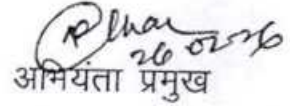 26/02/26
अभियंता प्रमुख